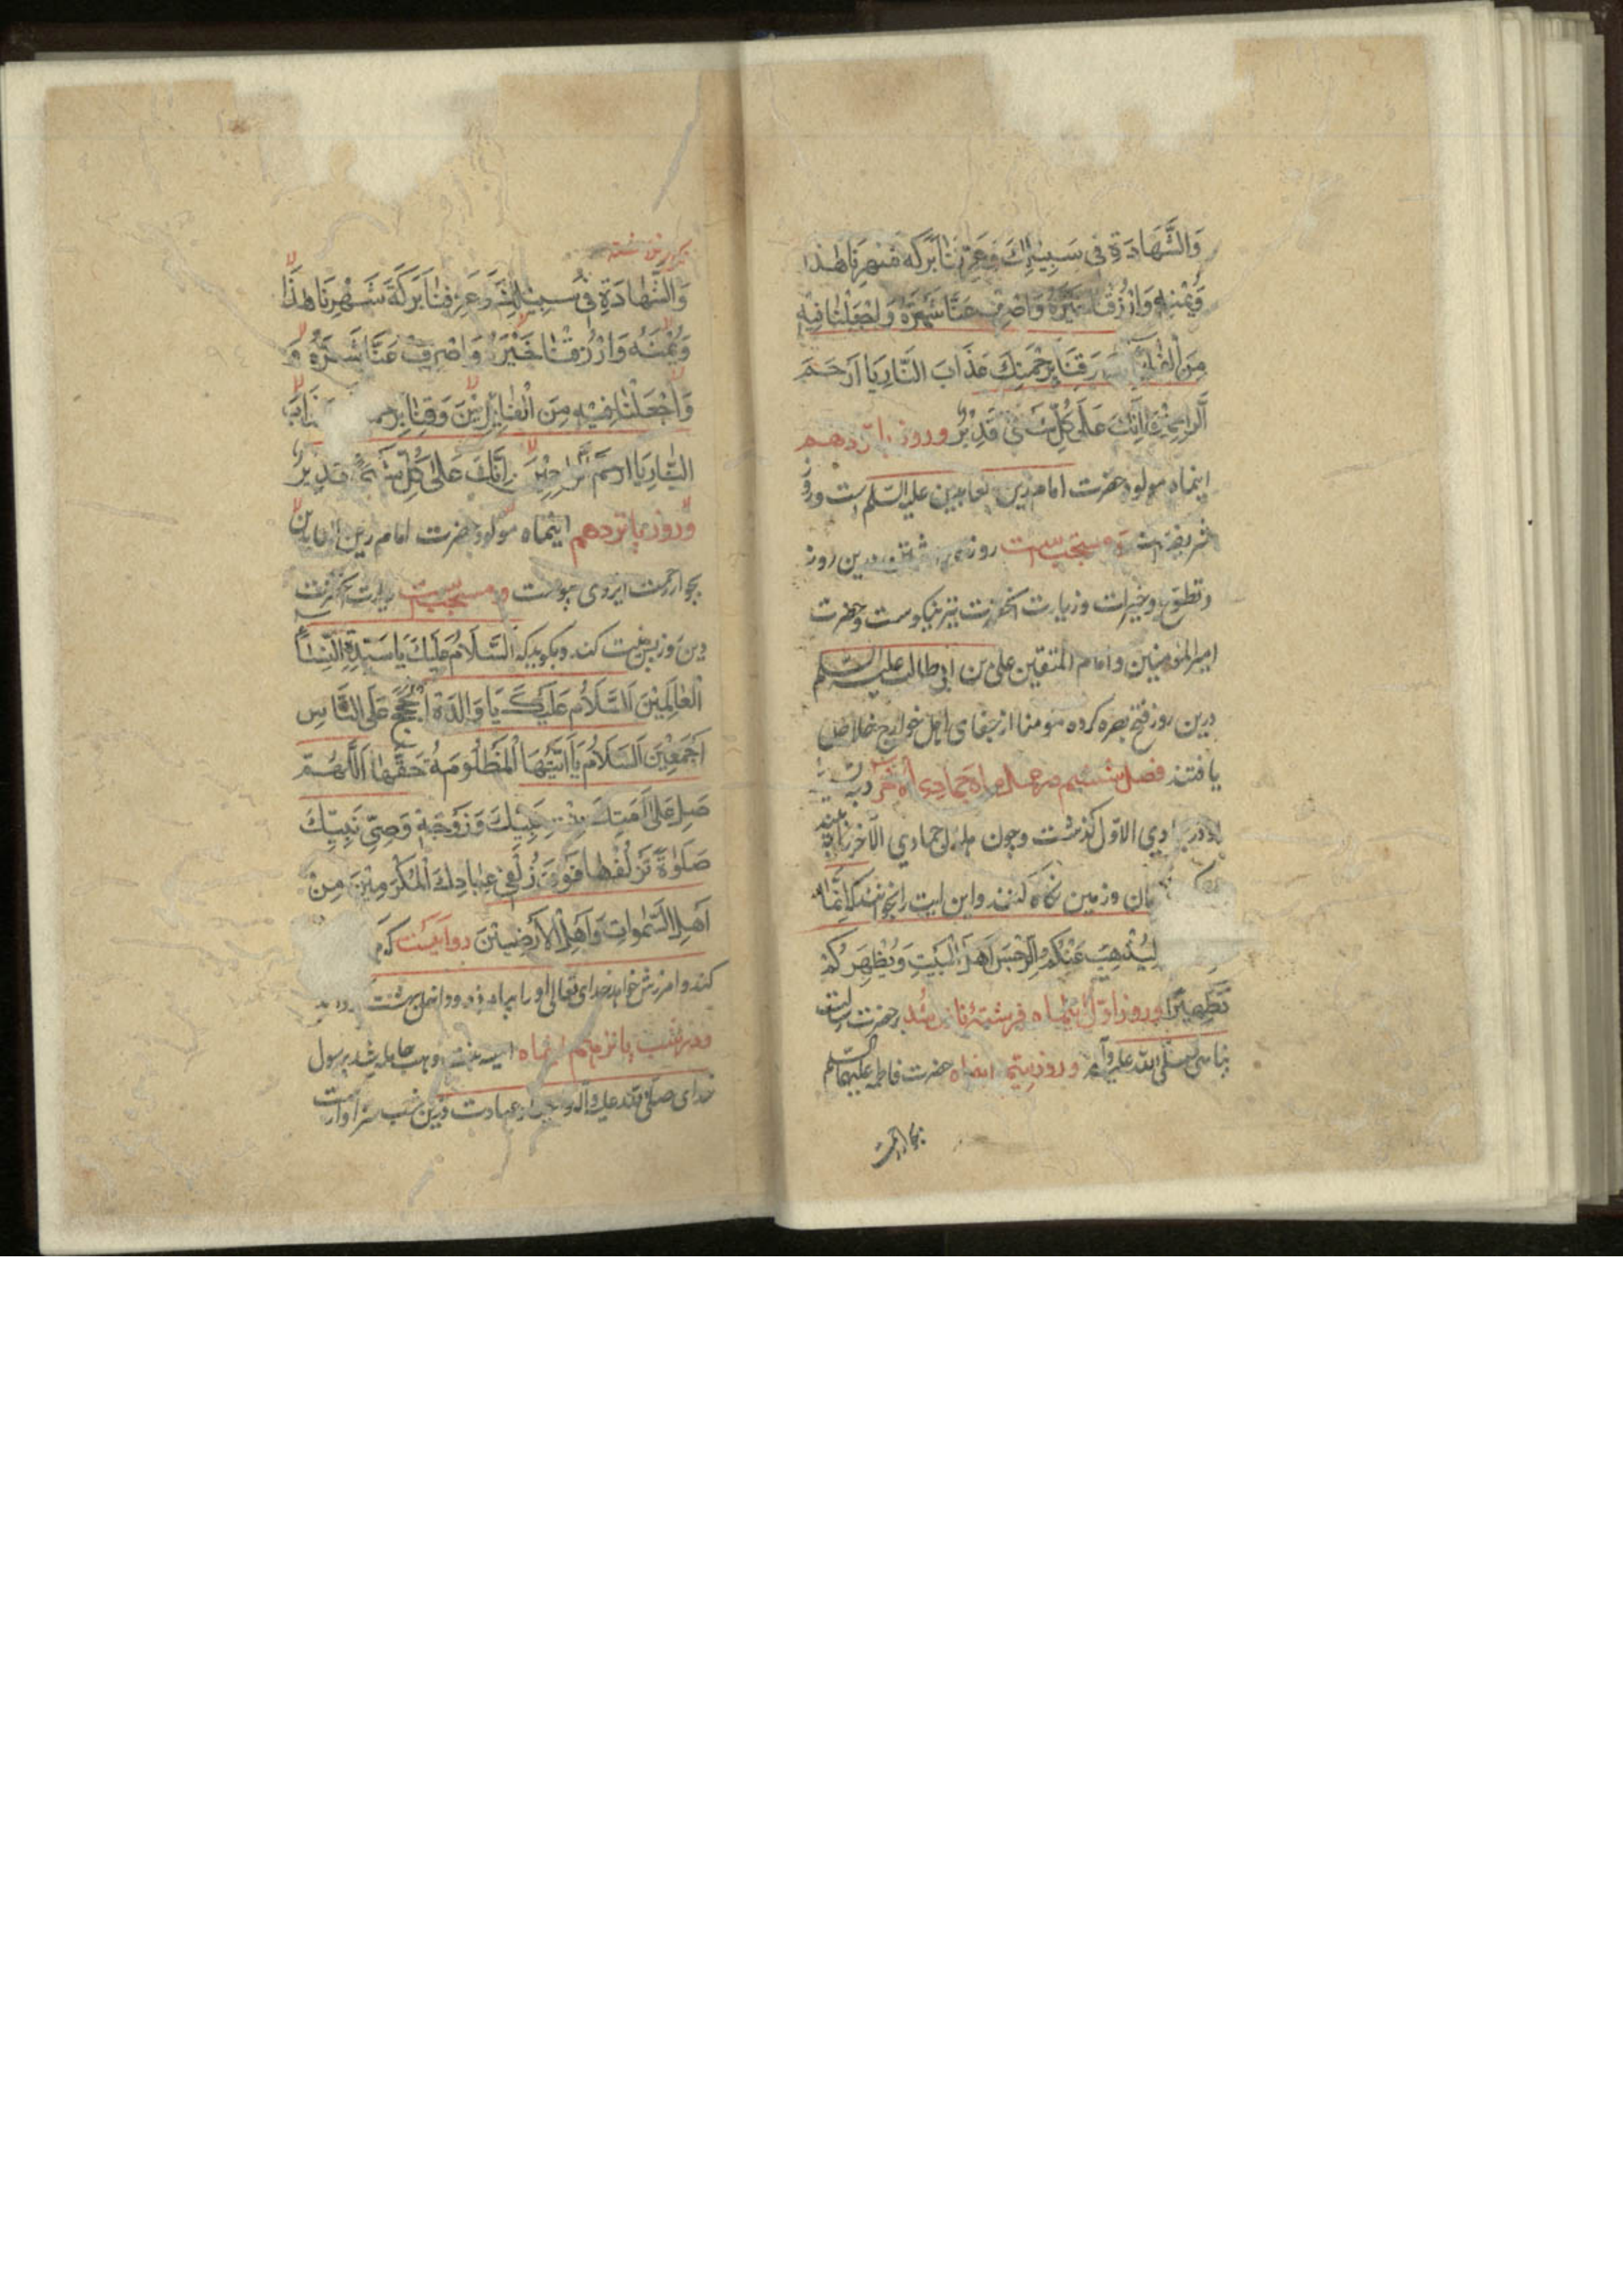 وَالشَّهَادَةِ فِی سَبِیلِكَ وَعَرِّفْنَا بَرَكَةَ شَهْرِنَا هٰذَا
وَیُمْنَهُ وَارْزُقْنَا خَیْرَهُ وَاصْرِفْ عَنَّا شَرَّهُ وَاجْعَلْنَا فِیهِ
مِنَ الْفَائِزِینَ وَقِنَا بِرَحْمَتِكَ عَذَابَ النَّارِ یَا اَرْحَمَ
الرَّاحِمِینَ اِنَّكَ عَلَی كُلِّ شَیْءٍ قَدِیْرٌ وروز پانزدهم
اینماه مولود حضرت امام زین العابدین علیه السّلم است وروز
شریفست ومستحب است روزه داشتن درین روز
وتطوّع وخیرات وزیارت آنحضرت نیز نیکوست وحضرت
امیر المؤمنین وامام المتقین علی بن ابی طالب علیه السّلم
درین روز فتح بصره کرده مؤمنا از جفای اهل خوارج خلاص
یافتند فصل ششم در عمل ماه جمادی الآخر
جمادی الاوّل کذشت وچون هلال جمادی الآخر
وزمین نگاه کنند واین آیت را بخوانند که اِنَّمَا
لِیُذْهِبَ عَنْكُمُ الرِّجْسَ اَهْلَ الْبَیْتِ وَیُطَهِّرَكُمْ
تَطْهِیْرًا وروز اوّل اینماه فرشته نازل شد بر حضرت رسالت
پناهی صلی الله علیه وآله وروز بیستم اینماه حضرت فاطمه علیها السّلم
بجوار رحمت
وَالشَّهَادَةِ فِی سَبِیلِكَ وَعَرِّفْنَا بَرَكَةَ شَهْرِنَا هٰذَا
وَیُمْنَهُ وَارْزُقْنَا خَیْرَهُ وَاصْرِفْ عَنَّا شَرَّهُ وَ
وَاجْعَلْنَا فِیْهِ مِنَ الْفَائِزِیْنَ وَقِنَا عَذَابَ
النَّارِ یَا ارحم الراحِمِیْنَ اِنَّكَ عَلٰی كُلِّ شَیْءٍ قَدِیْرٌ
وروز پانزدهم اینماه مولود حضرت امام زین العابدین
بجوار رحمت ایزدی پیوست ومستحب است زیارت آنحضرت
درین روز کند وبکوید که اَلسَّلَامُ عَلَیْكَ یَا سَیِّدَةِ النِّسَاءِ
الْعَالَمِیْنَ اَلسَّلَامُ عَلَیْكَ یَا وَالِدَةَ الْحُجَجِ عَلَی النَّاسِ
اَجْمَعِیْنَ اَلسَّلَامُ یَا اَیَّتُهَا الْمَظْلُومَةُ حَقُّهَا اَللّٰهُمَّ
صَلِّ عَلٰی اَمَتِكَ بِنْتِ نَبِیِّكَ وَزَوْجَةِ وَصِیِّ نَبِیِّكَ
صَلَوٰةً تُزْلِفُهَا فَوْقَ زُلْفٰی عِبَادِكَ الْمُكَرَّمِیْنَ مِنْ
اَهْلِ السَّمٰوَاتِ وَاَهْلِ الْاَرَضِیْنَ روایتست که
کند وامرزش خواهد خدای تعالی او را بیامرزد ودر بهشت
ودر شب پانزدهم اینماه آمنه بنت وهب حامله شد برسول
خدای صلی الله علیه وآله عبادت درین شب سزاوارست